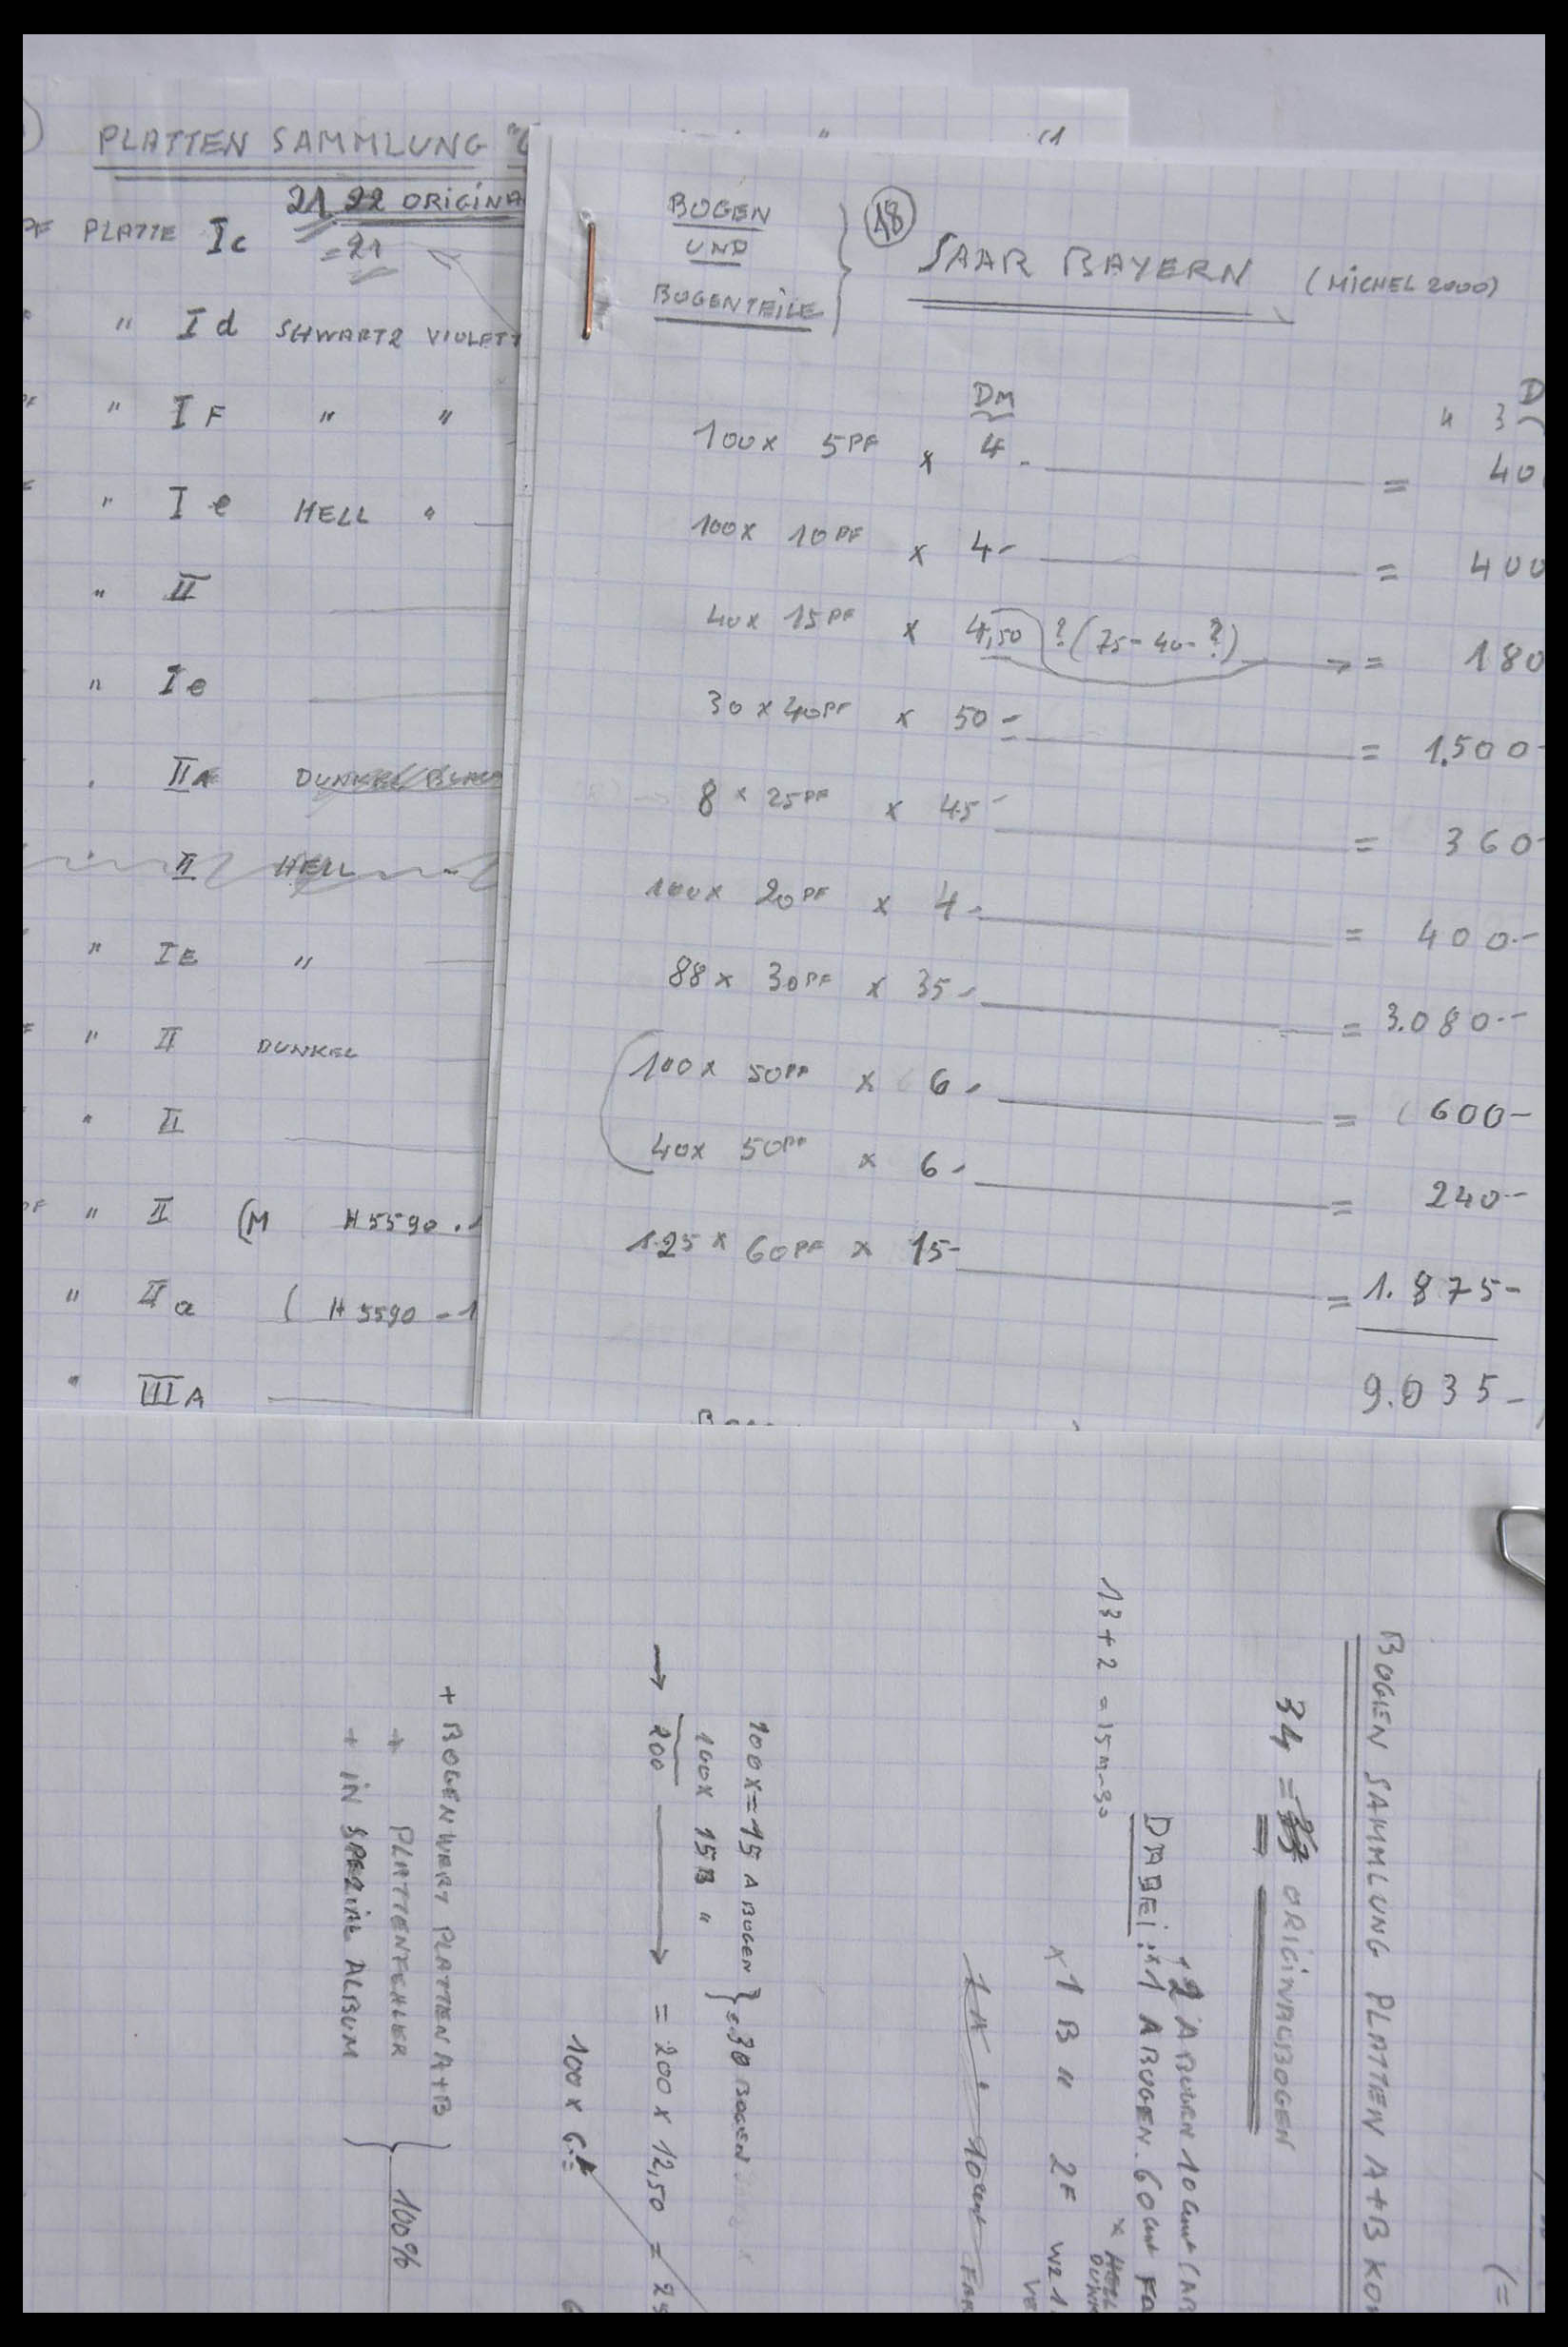 PLATTEN SAMMLUNG
21 22 ORIGINA
PF PLATTE Ic = 21
" Id SCHWARTZ VIOLETT
" IF " "
" Ie HELL "
" II
" Ie
IIA DUNKEL BLAU
II HELL
" IE "
" II DUNKEL
" II
" II (M H5590 - 1
" IIa ( H5590 - 1
" IIIA
BOGEN
UND
BOGENTEILE
18 SAAR BAYERN (MICHEL 2000)
DM
100x 5PF x 4.- = 40
100x 10PF x 4- = 400
40x 15PF x 4,50 ? (75-40-?) → = 180
30x 40PF x 50- = 1.500-
8x 25PF x 45- = 360-
100x 20PF x 4- = 400.-
88x 30PF x 35- = 3.080.-
100x 50PF x 6- = 600-
40x 50PF x 6- = 240.-
125x 60PF x 15- = 1.875-
9.035-
BOGEN SAMMLUNG PLATTEN A+B
34 = ORIGINALBOGEN
12 A BOGEN 10 cent
DABEI: x1 A BOGEN. 60 cent
13 + 2 =
x 1 B " 2F
1A 10 cent
100x = 15 A BOGEN
100x 15 B " } = 30 BOGEN
→ 200 → = 200 x 12,50 =
100 x
+ BOGENWERT PLATTEN A+B
+ PLATTENFEHLER
+ IN SPEZIAL ALBUM } 100%